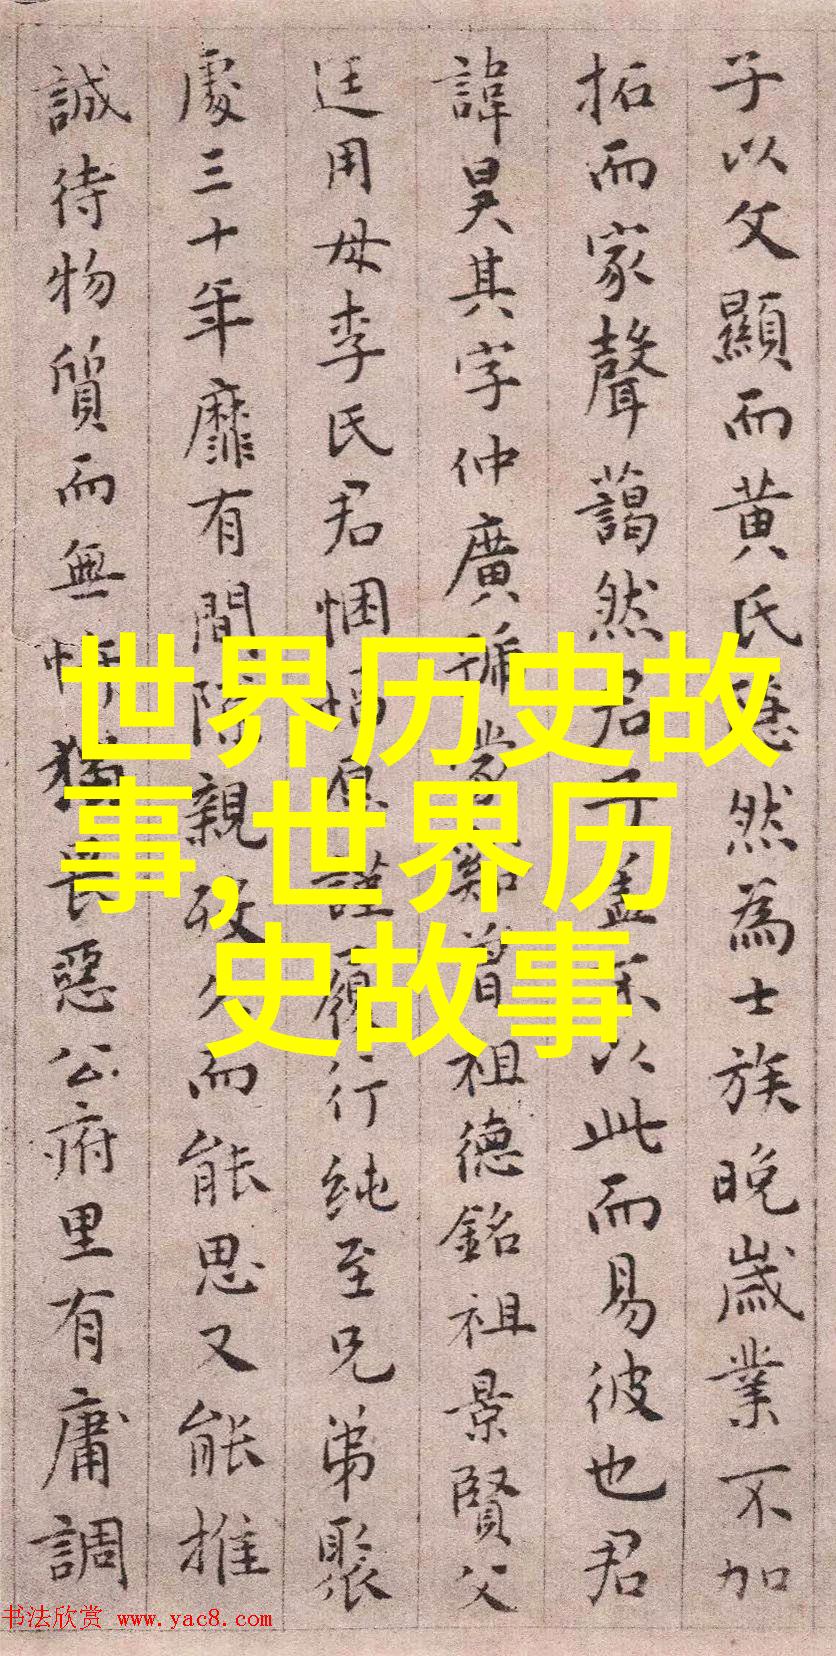 子以父顯而黄氏然為士族晚歲業不加
拓而家聲藹然君子盖不以此而易彼也君
諱昊其字仲廣號蒙曾祖德銘祖景賢父
廷用母李氏君悃愊息謹履行純至兄弟聚
處三十年靡有間隙親歿久而能思又能推
誠待物質而無忤猶畏惡公府里有庸調
世界历史故
事,世界历
史故事
书法欣赏 www.yac8.com